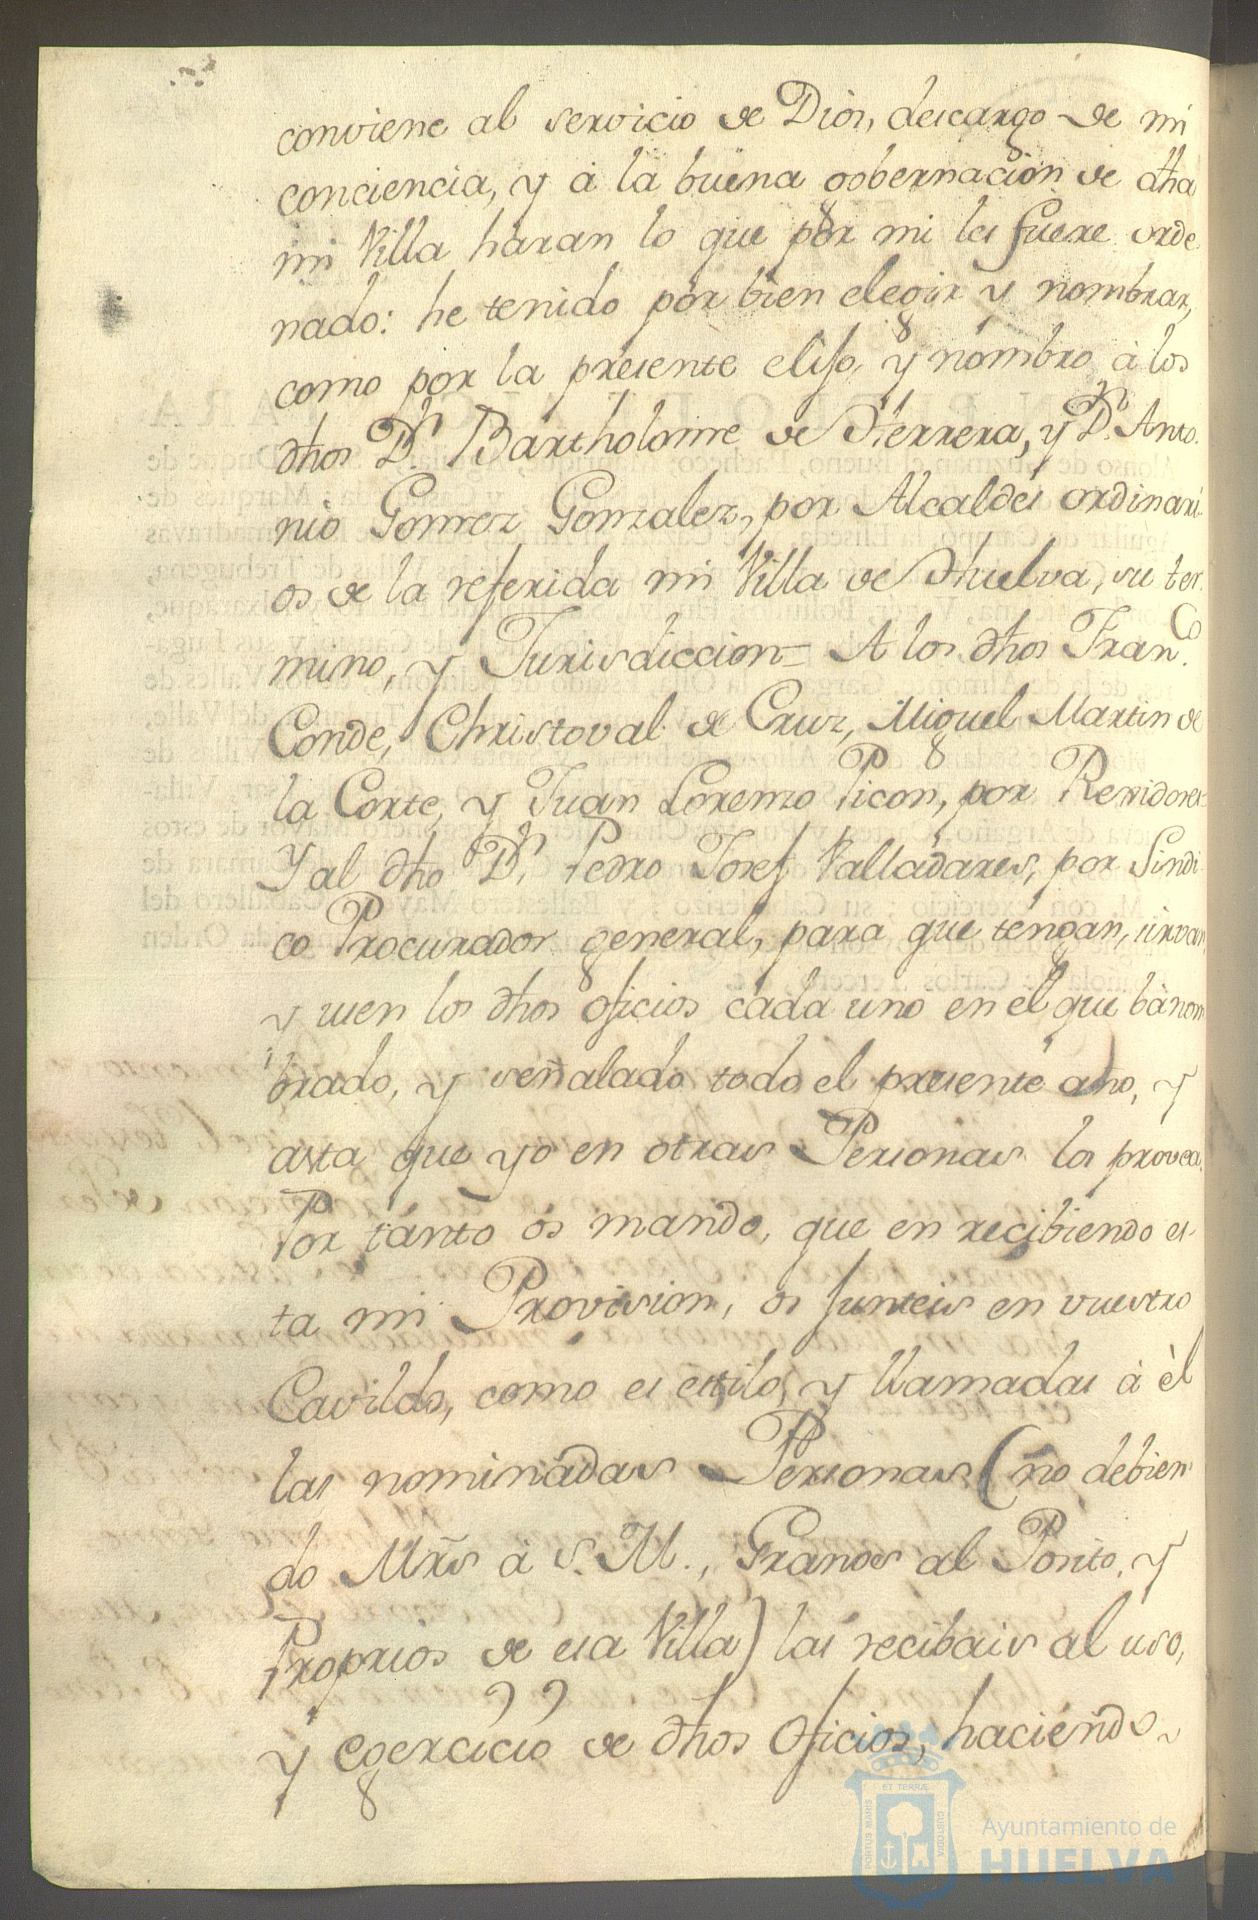 conviene al servicio de Dios, descargo de mi
conciencia, y à la buena gobernacion de dha
mi Villa haran lo que por mi les fuere orde
nado: he tenido por bien elegir y nombrar,
como por la presente elijo, y nombro à los
dhos Dn. Bartholome de Herrera, y Dn. Anto
nio Gomez Gonzalez, por Alcaldes ordinari
os de la referida mi Villa de Huelva, su ter
mino, y Jurisdiccion= A los dhos Franco.
Conde, Christoval de Cruz, Miguel Martin de
la Corte, y Juan Lorenzo Picon, por Regidores=
Y al dho Dn. Pedro Josef Valladares, por Sindi
co Procurador general, para que tengan, sirvan
y usen los dhos oficios cada uno en el que bà nom
brado, y señalado todo el presente año, y
asta que yo en otras Personas los provea.
Por tanto os mando, que en recibiendo es-
ta mi Provision, os junteis en vuestro
Cavildo, como es estilo, y llamadas à èl
las nominadas Personas (no debien
do Mrs à S. M., Granos al Posito, y
Proprios de esa Villa) las recibais al uso,
y egercicio de dhos Oficios, haciendo
PORTUS MARIS
ET TERRÆ
CUSTODIA
Ayuntamiento de
HUELVA